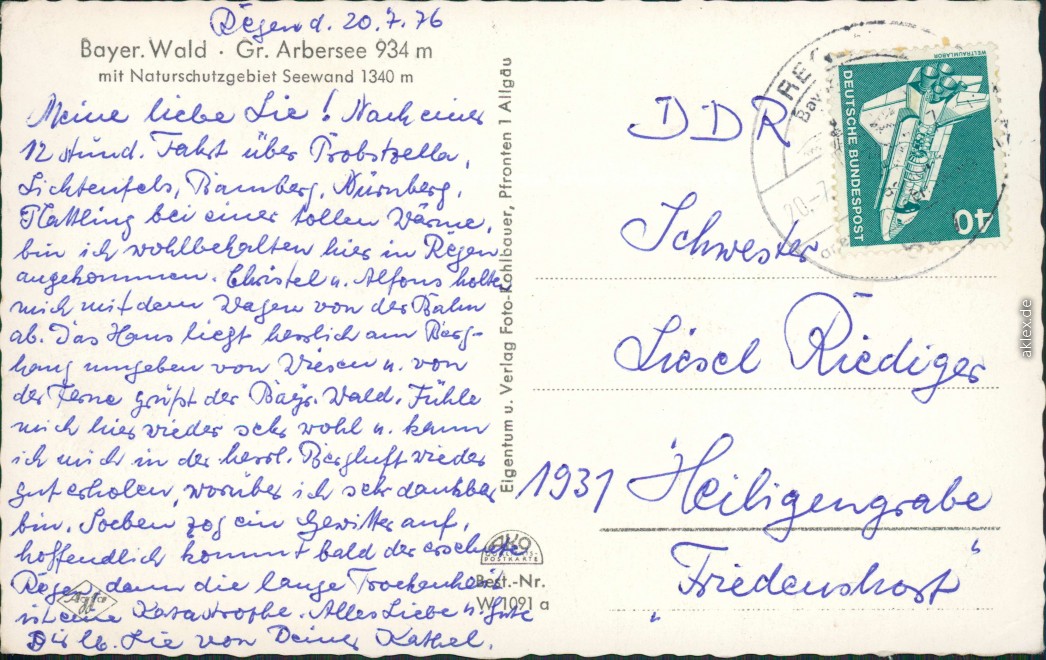 Regen d. 20.7.76
Bayer. Wald · Gr. Arbersee 934 m
mit Naturschutzgebiet Seewand 1340 m
Meine liebe Lie! Nach einer
12 stünd. Fahrt über Probstzella,
Lichtenfels, Bamberg, Nürnberg,
Plattling bei einer tollen Wärme,
bin ich wohlbehalten hier in Regen
angekommen. Christel u. Alfons holten
mich mit dem Wagen von der Bahn
ab. Das Haus liegt herrlich am Berg-
hang umgeben von Wiesen u. von
der Ferne grüßt der Bayr. Wald. Fühle
mich hier wieder sehr wohl u. kann
ich mich in der herrl. Bergluft wieder
gut erholen, worüber ich sehr dankbar
bin. Soeben zog ein Gewitter auf,
hoffendlich kommt bald der ersehnte
Regen, denn die lange Trockenheit
ist eine Katastrophe. Alles Liebe u. Gute
Dir lb. Lie von Deiner Kathel.
Eigentum u. Verlag Foto-Kohlbauer, Pfronten 1 Allgäu
POSTKARTE
Best.-Nr.
W 1091 a
DDR
Schwester
Liesel Riediger
1931 Heiligengrabe
"Friedenshort"
WELTRAUMLABOR
DEUTSCHE BUNDESPOST
40
20.-7.
aklex.de